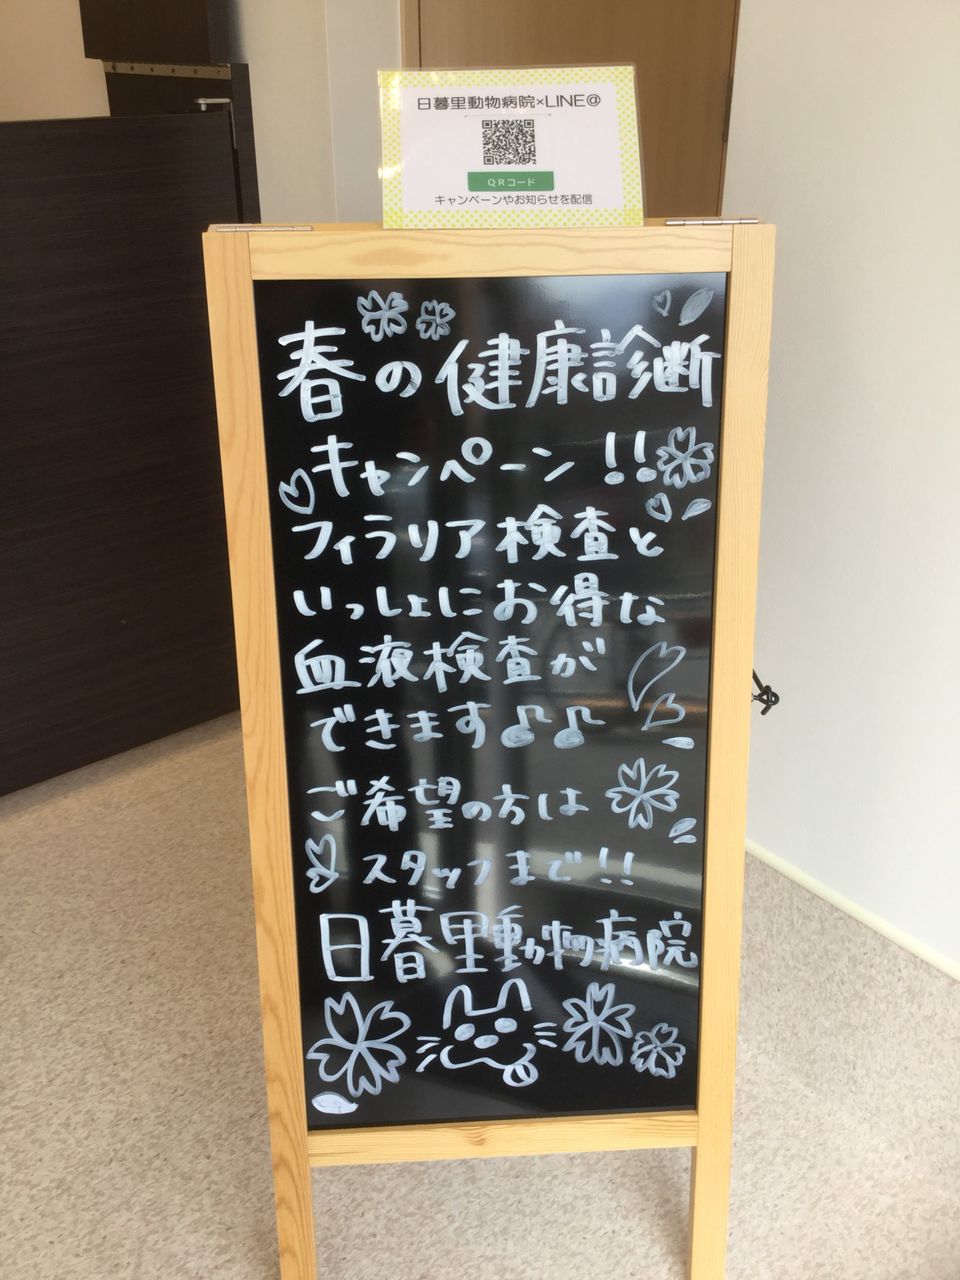 日暮里動物病院×LINE@
QRコード
キャンペーンやお知らせを配信
春の健康診断
キャンペーン!!
フィラリア検査と
いっしょにお得な
血液検査が
できます♫♫
ご希望の方は
スタッフまで!!
日暮里動物病院